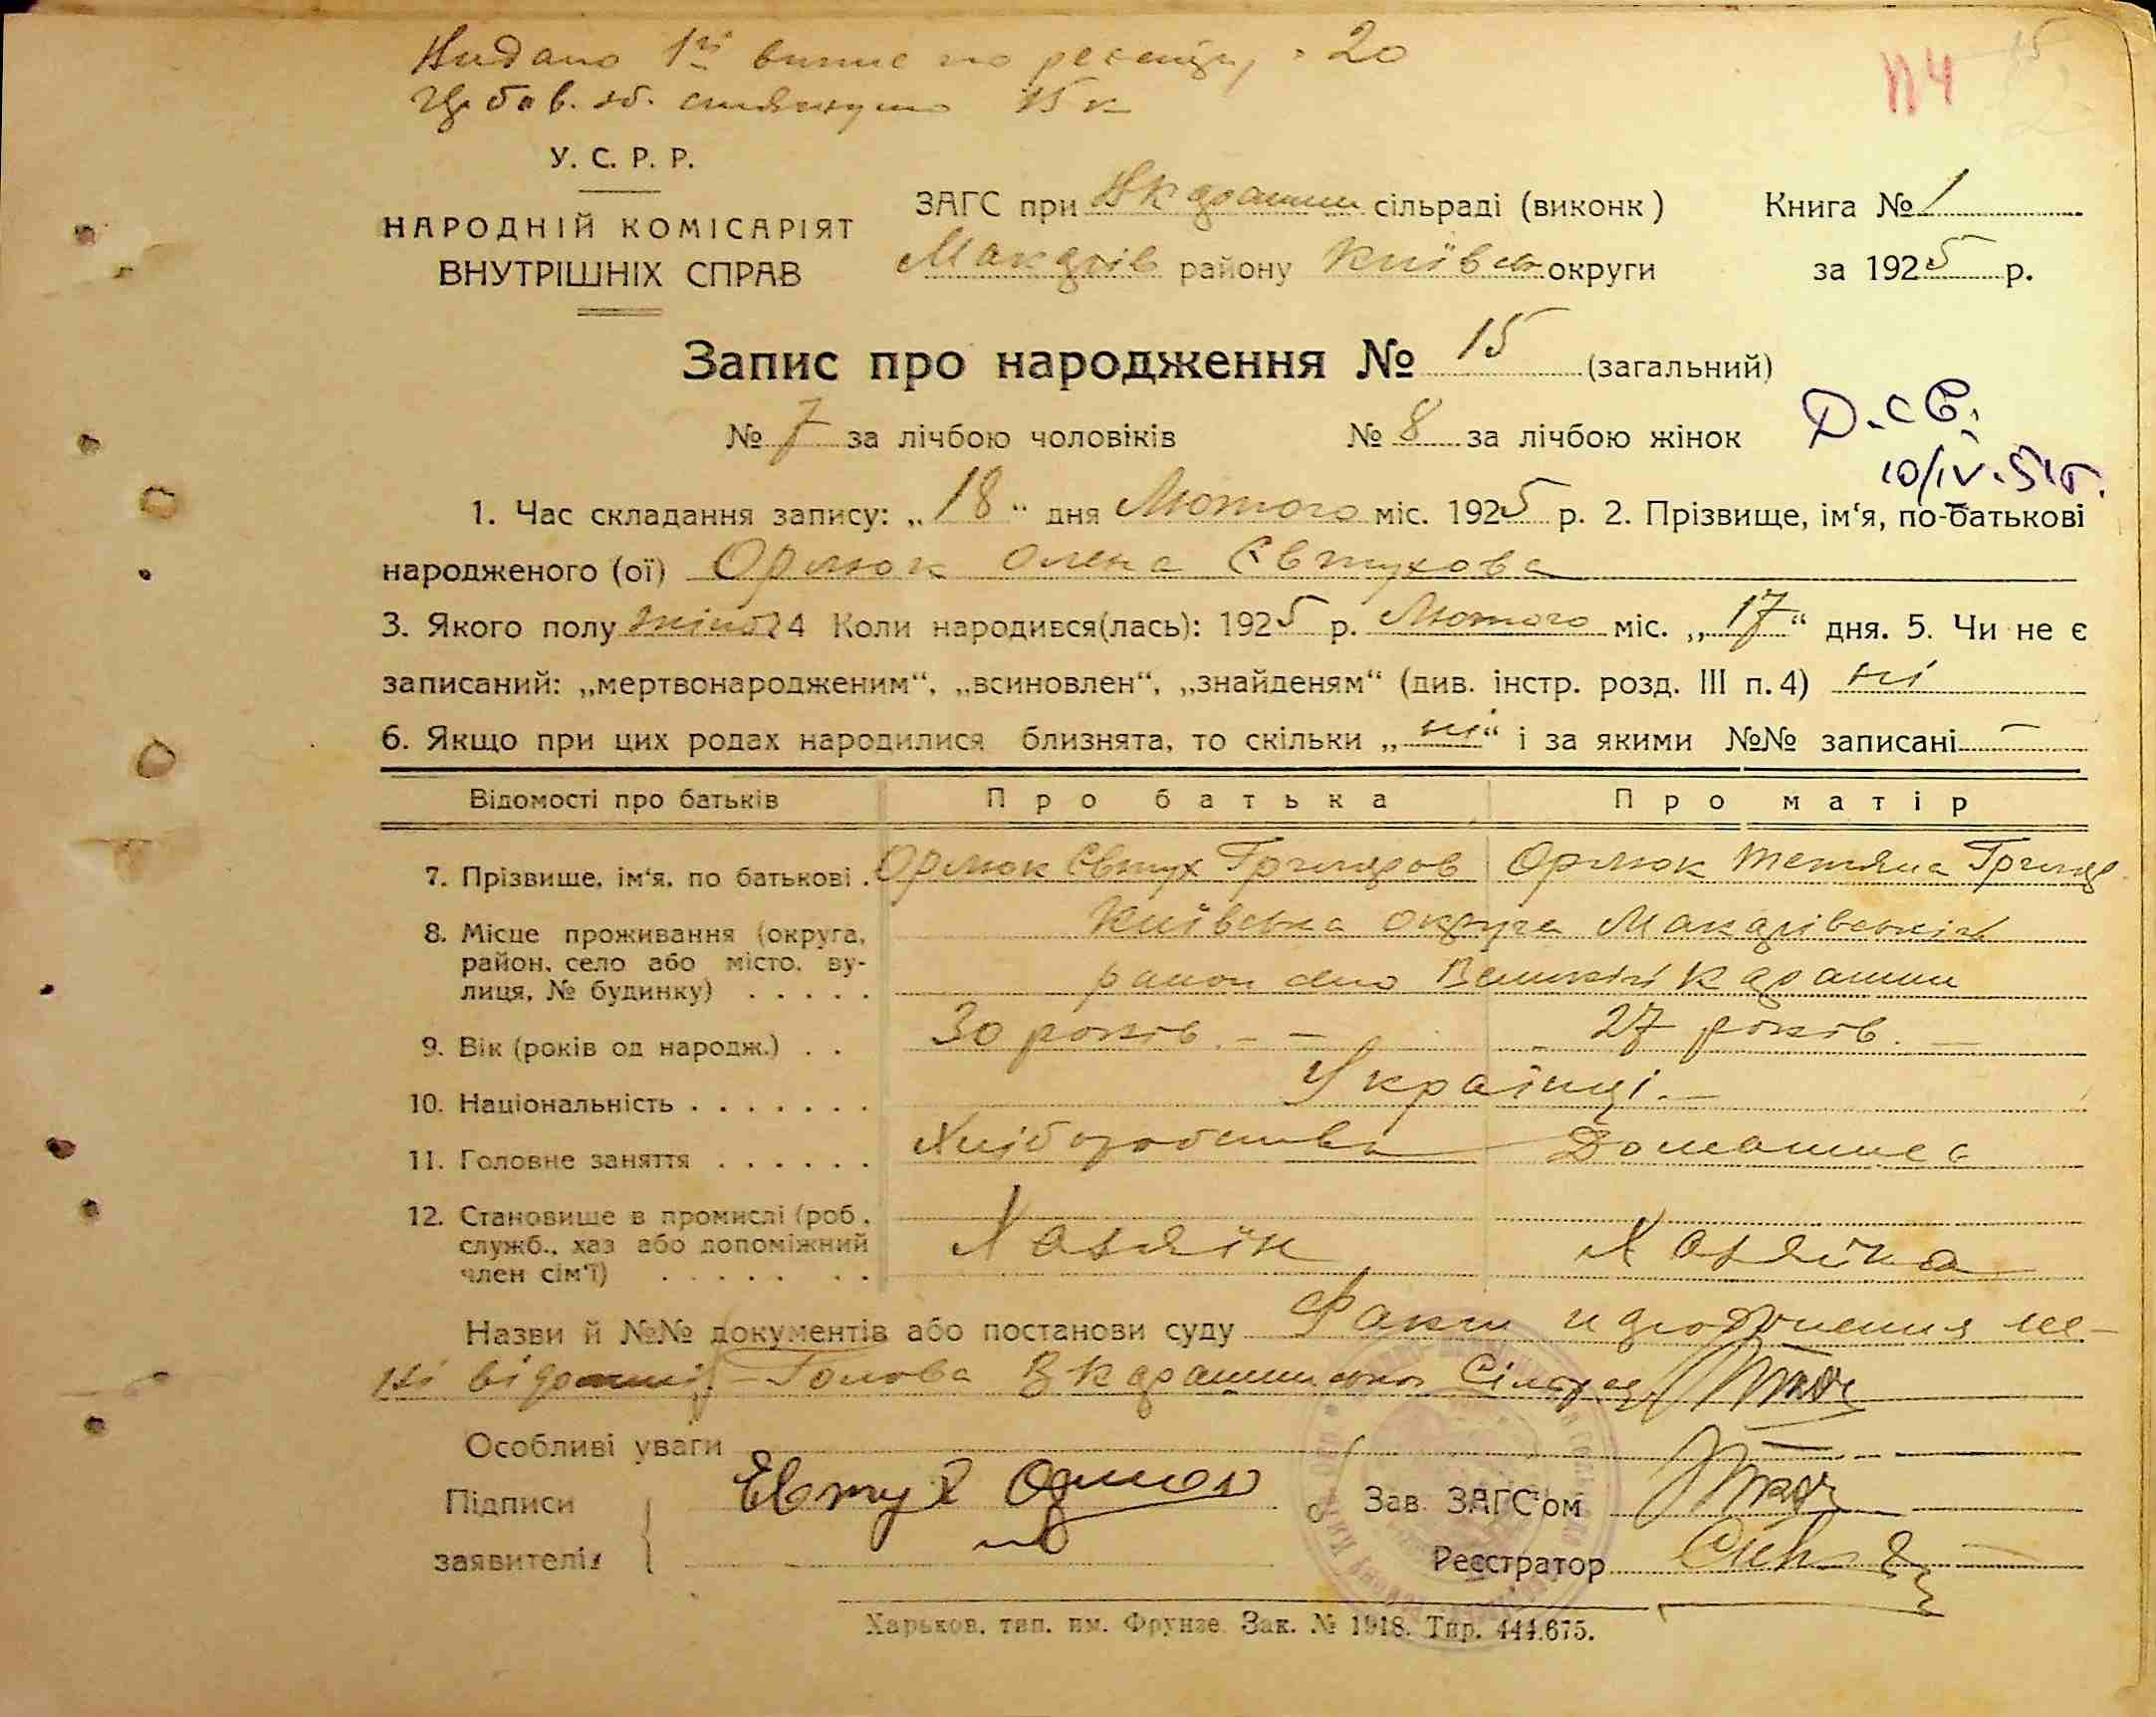 Видано 1й випис по реєстру 20
стягнуто 15 к
N4
15
У. С. Р. Р.
НАРОДНІЙ КОМІСАРІЯТ
ВНУТРІШНІХ СПРАВ
ЗАГС при ВКарашин сільраді (виконк)
Макарів району Київськ округи
Книга № 1
за 1925 р.
Запис про народження № 15 (загальний)
№ 7 за лічбою чоловіків № 8 за лічбою жінок
Д.С.С.
10/IV.51г.
1. Час складання запису: „18“ дня Лютого міс. 1925 р. 2. Прізвище, ім‘я, по-батькові
народженого (ої) Орлюк Олена Євтухова
3. Якого полу жіноч 4 Коли народився(лась): 1925 р. Лютого міс. „17“ дня. 5. Чи не є
записаний: „мертвонародженим“, „всиновлен“, „знайденям“ (див. інстр. розд. III п.4) ні
6. Якщо при цих родах народилися близнята, то скільки „ні“ і за якими №№ записані —
Відомості про батьків Про батька Про матір
7. Прізвище, ім‘я, по батькові . Орлюк Євтух Григоров Орлюк Тетяна Григор
8. Місце проживання (округа, Київська округа Макарівський
район, село або місто, ву- район село Великий Карашин
лиця, № будинку) . . . . .
9. Вік (років од народж.) . . 30 років. — 27 років. —
10. Національність . . . . . . . Українці. —
11. Головне заняття . . . . . . Хліборобство Домашнє
12. Становище в промислі (роб.
служб., хаз або допоміжний Хазяїн Хазяйка
член сім‘ї) . . . . . . .
Назви й №№ документів або постанови суду Факт народження ме-
ні відомий. — Голова ВКарашинської Сільради
Особливі уваги
Підписи Евтух Орлюк Зав. ЗАГС‘ом
заявителів Реєстратор
Харьков, тип. им. Фрунзе. Зак. № 1918. Тир. 444.675.